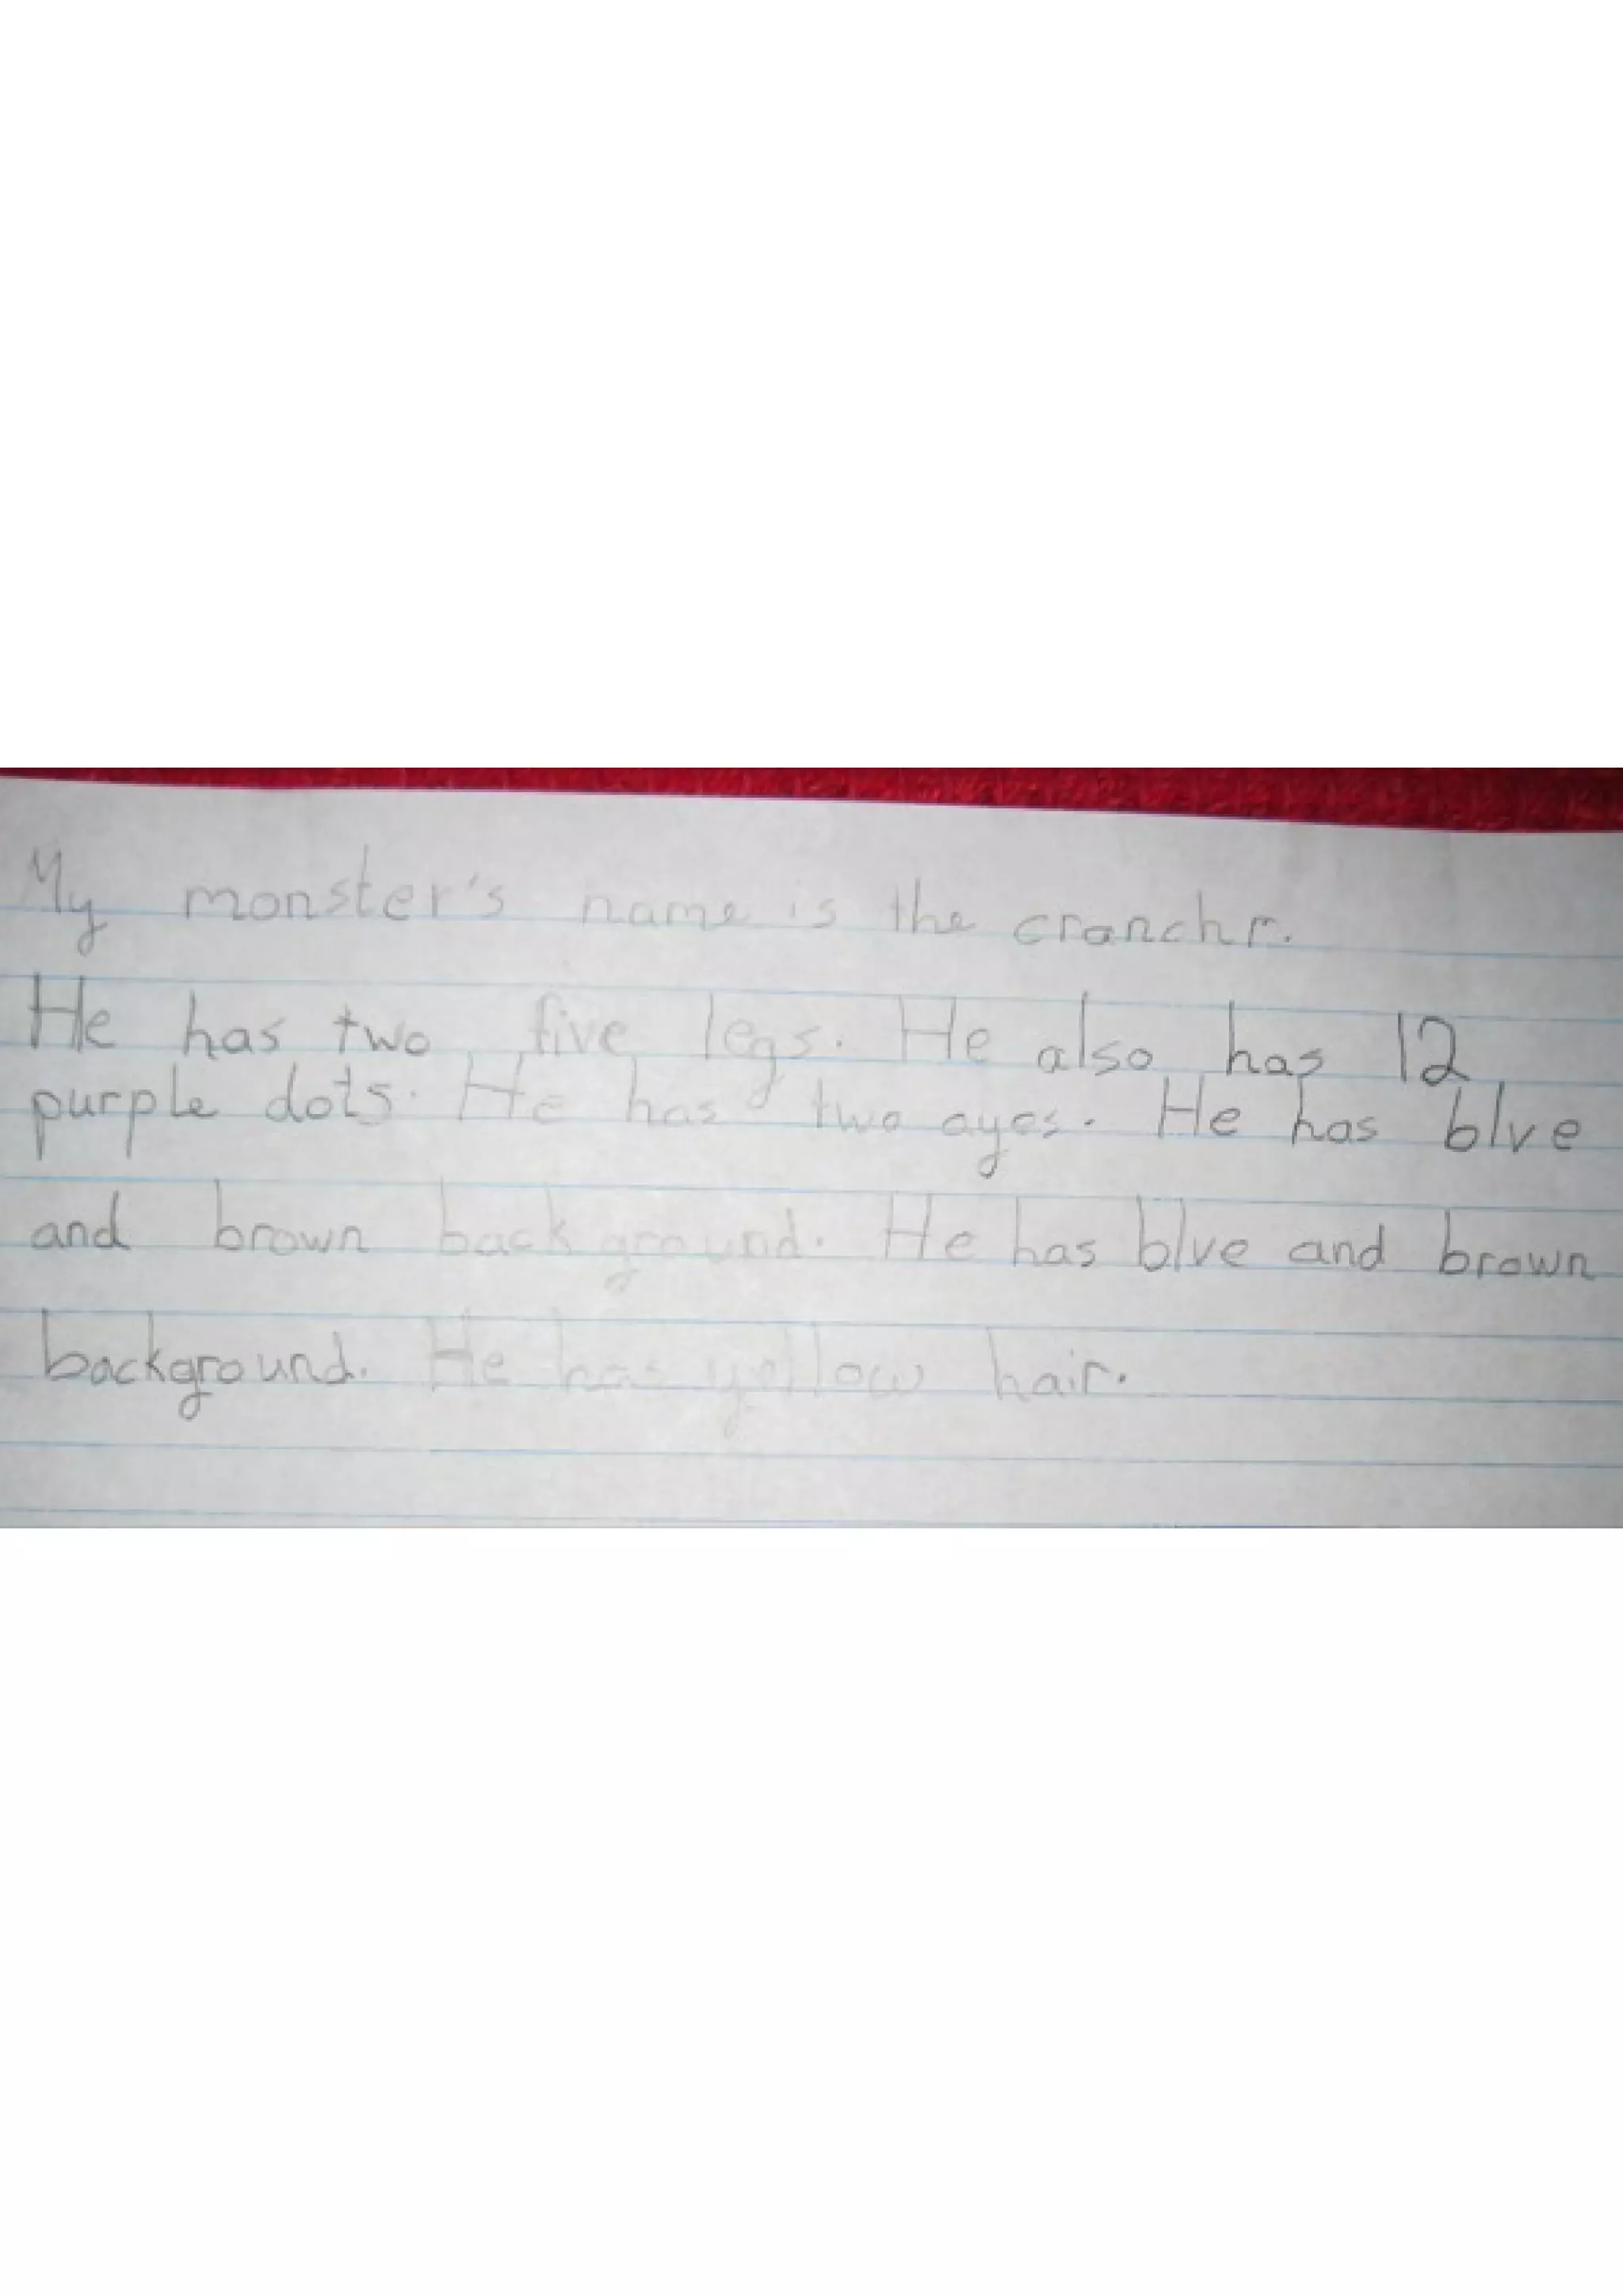 My monster's name is the cranchr.
He has two five legs. He also has 12
purple dots. He has two ayes. He has blve
and brown back ground. He has blve and brown
background. He has yellow hair.